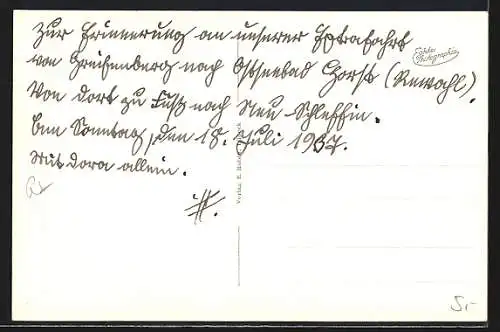 Zur Erinnerung an unserer Extrafahrt
von Greifenberg nach Ostseebad Horst (Rewahl).
Von dort zu Fuß nach Neu Schleffin.
Am Sonntag, den 18. Juli 1937.
Mit Dora allein.
H.
Echte Photographie
Verlag E.
5,-